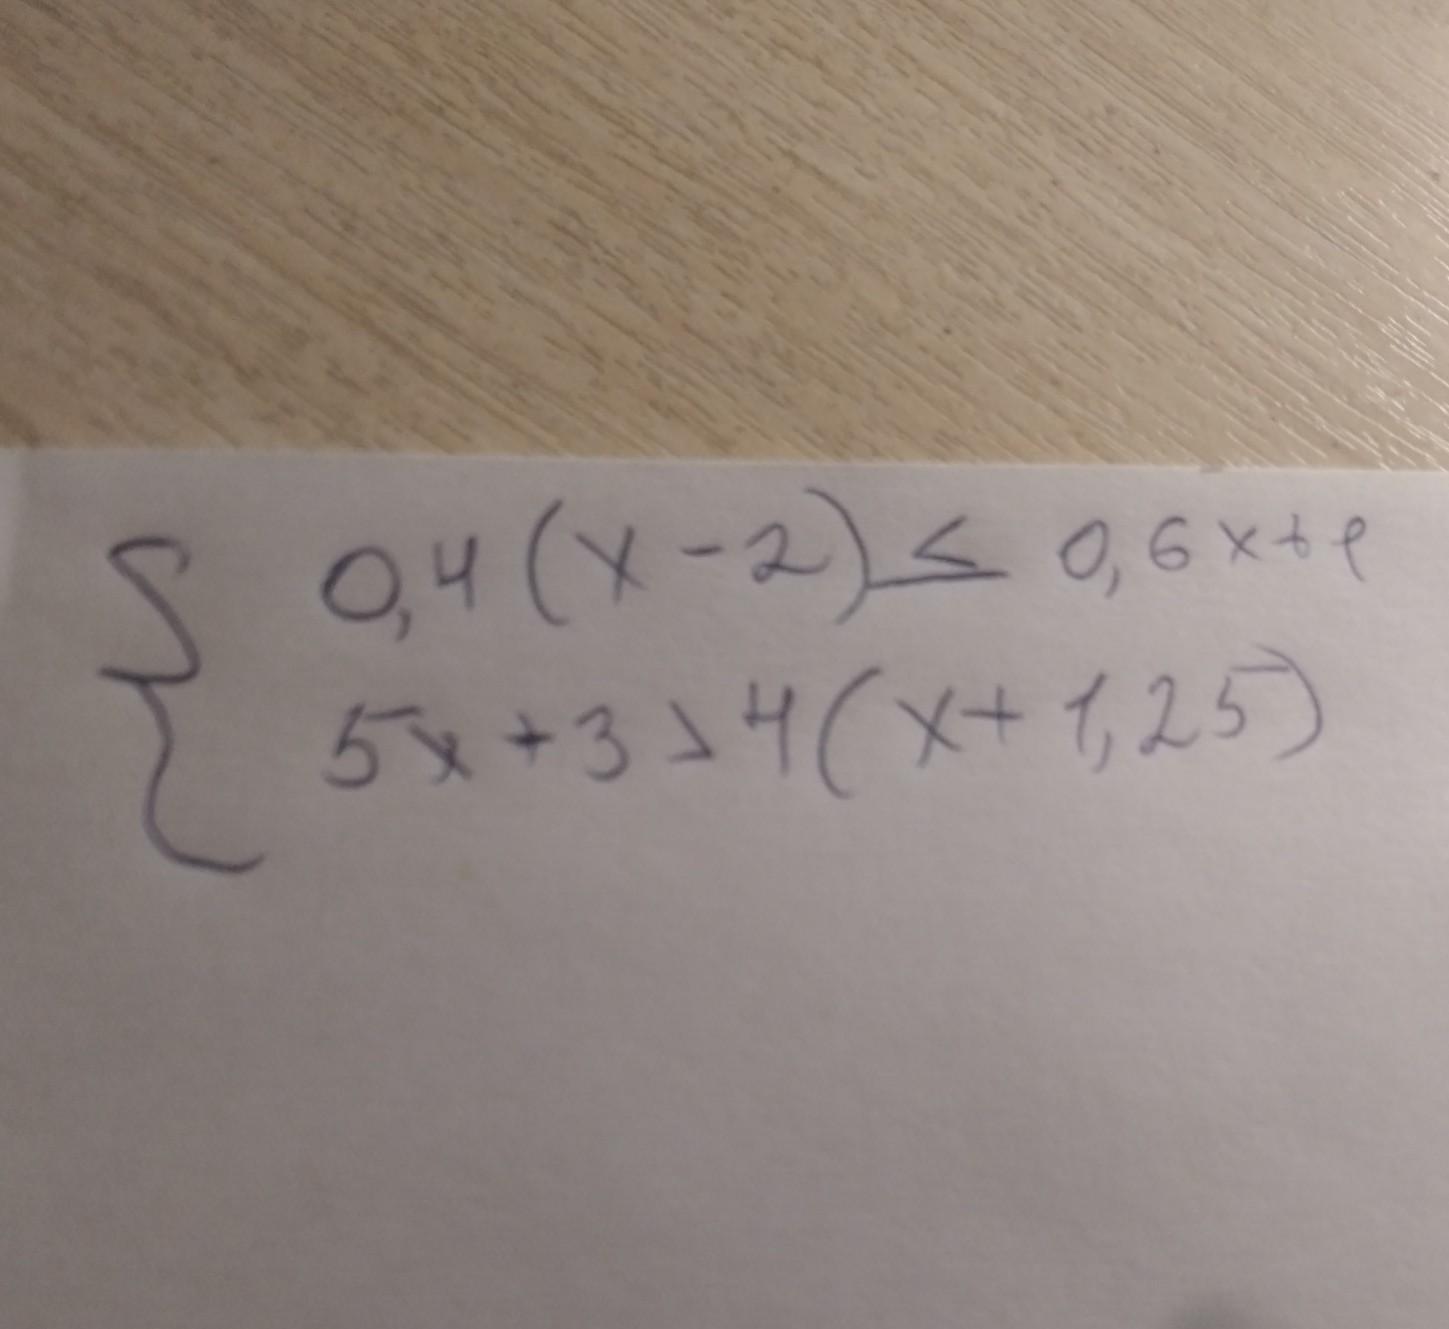 0,4(x-2) ≤ 0,6x+1
5x+3>4(x+1,25)